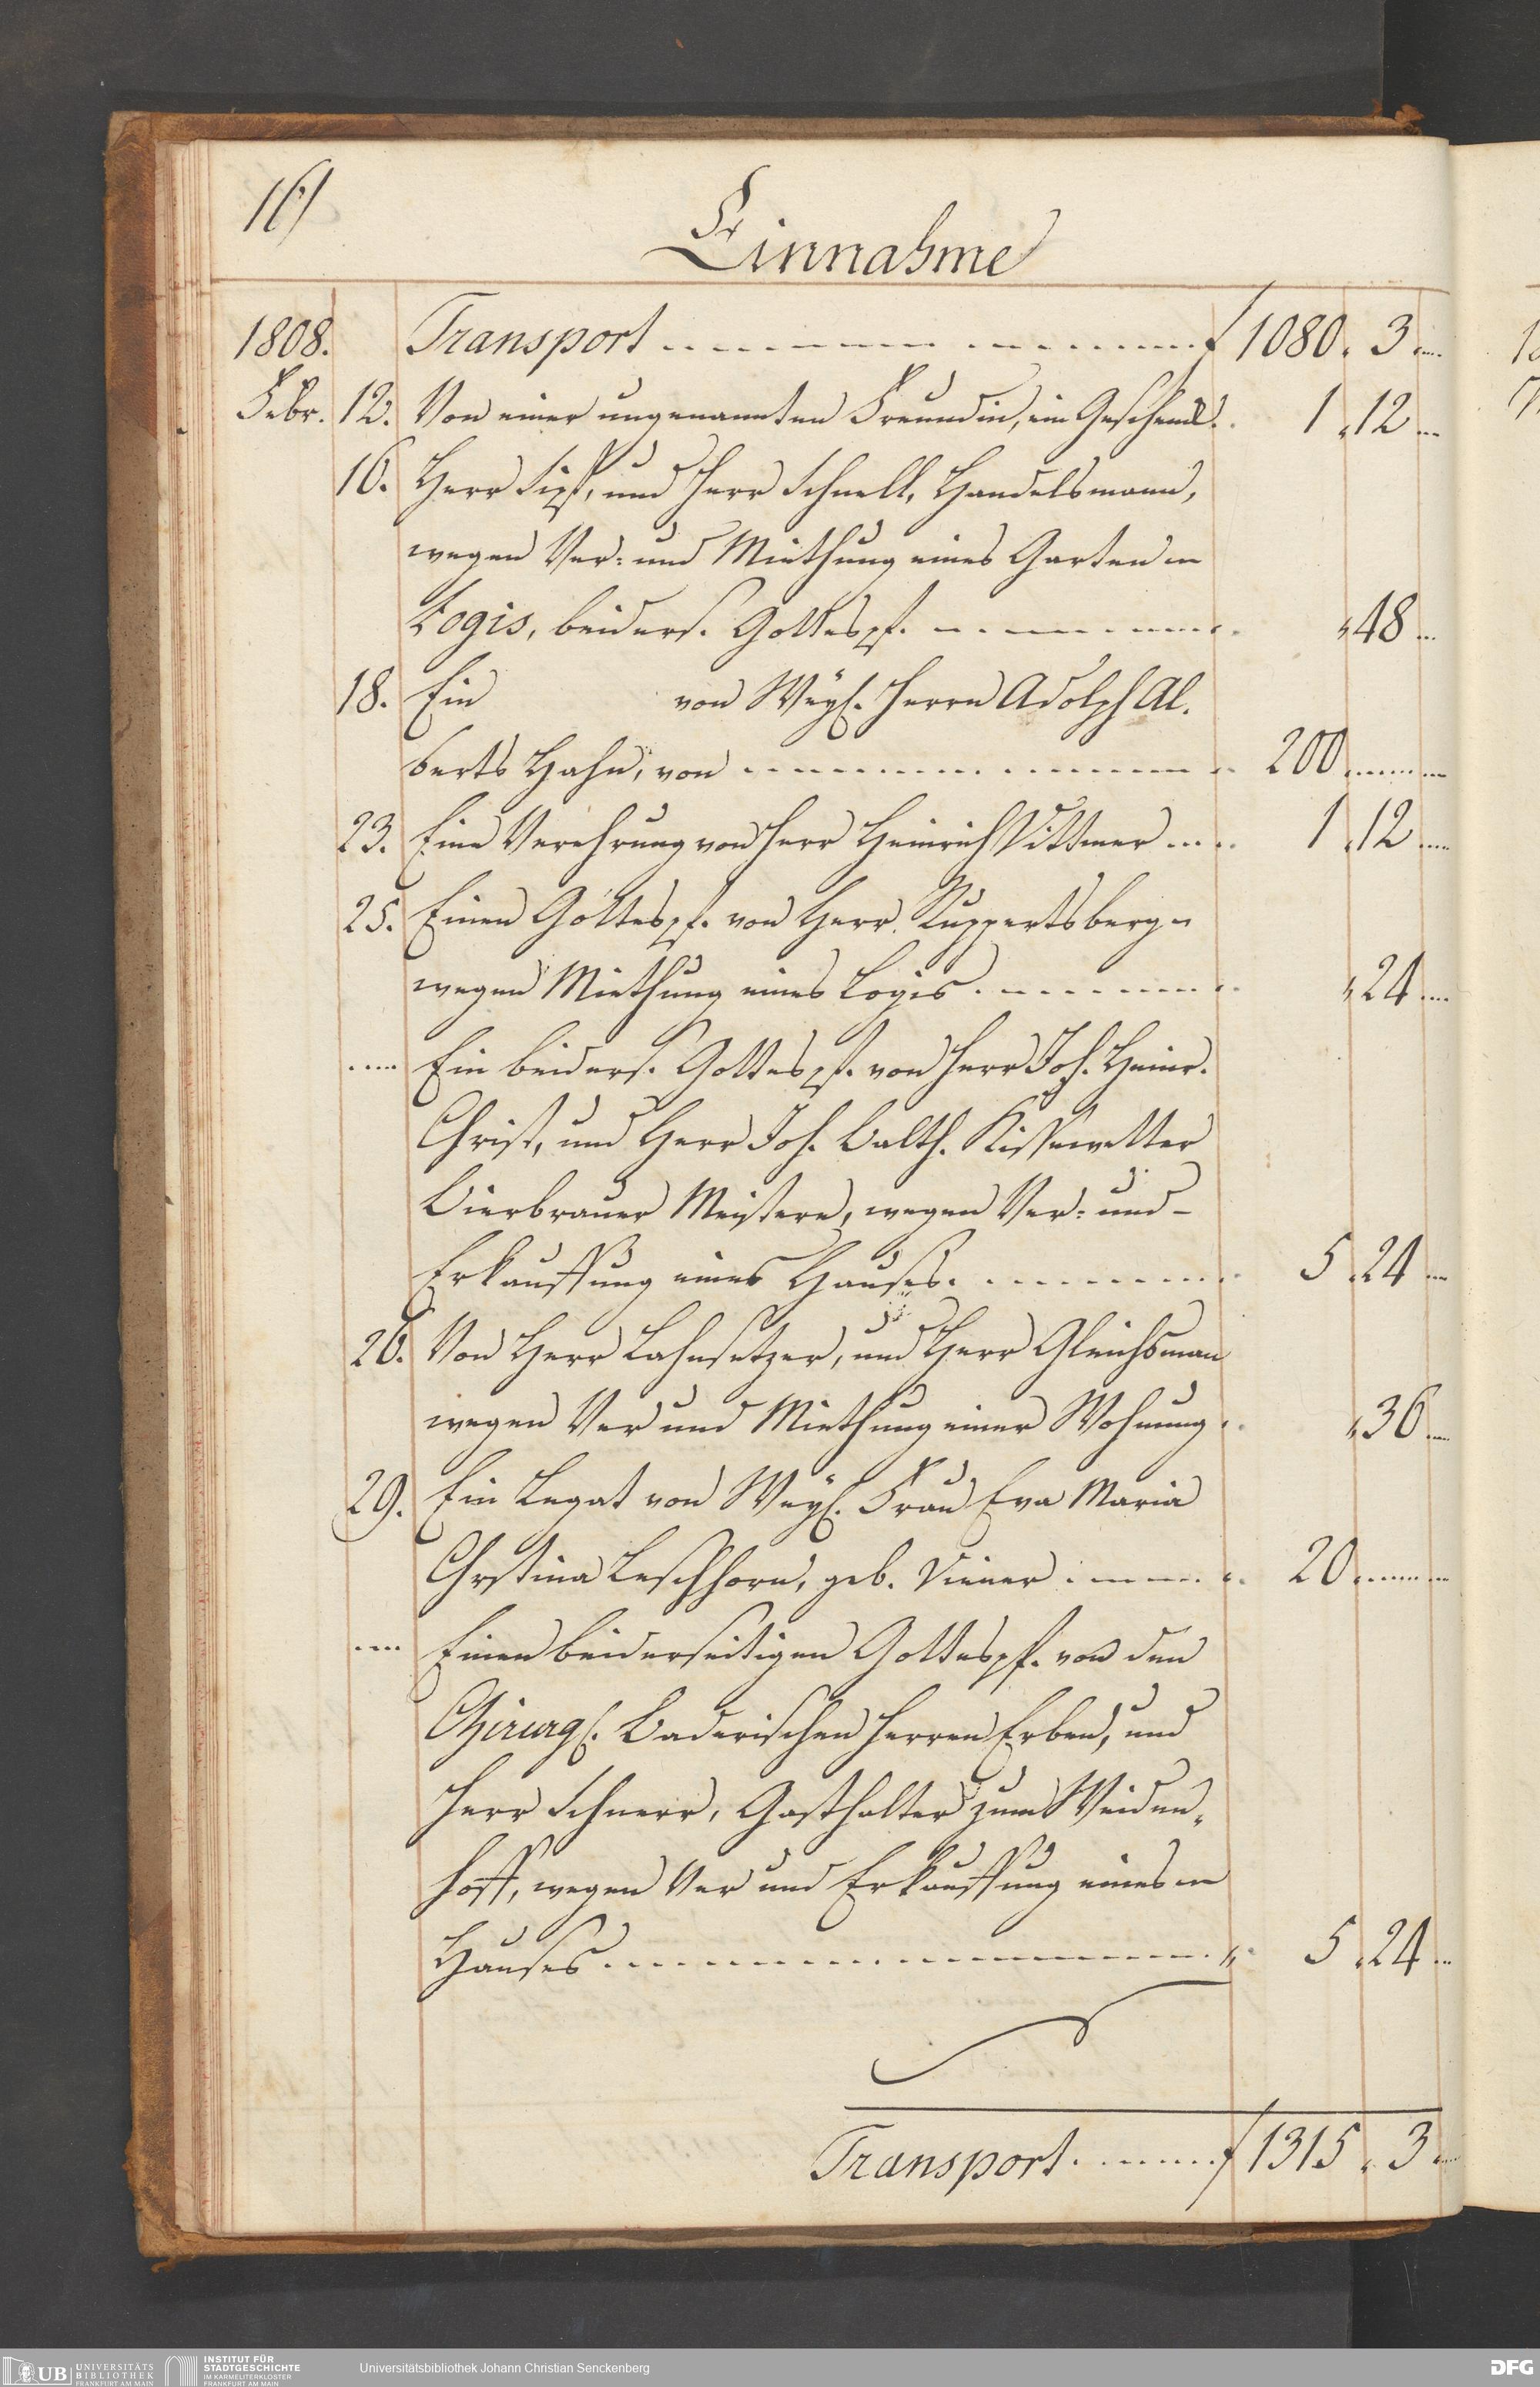 16)
Einnahme
1808. Transport f 1080. 3
Febr. 12. Von einer ungenannten Freundin, ein Geschenk. 1. 12
16. Herr und Herr Schnell, Handelsmann,
wegen Ver- und Miethung eines Garten
Logis, beiders. Gottespf. 48
18. Ein von Weyl. Herrn Adolph Al-
berts Hahn, von 200
23. Eine Verehrung von Herr Heinrich Vittmer 1. 12
25. Einen Gottespf. von Herr Ruppertsberg
wegen Miethung eines Logis 24
Ein beiders. Gottespf. von Herr Joh. Heinr.
Christ, und Herr Joh. Balth. Kissewetter
Bierbrauer Meistere, wegen Ver- und
Erkauffung eines Hauses. 5. 24
26. Von Herr Lahnsetzer, und Herr Gleichsman
wegen Ver und Miethung einer Wohnung 36
29. Ein Legat von Weyl. Frau Eva Maria
Chrstina Leschhorn, geb. Diener 20
Einen beiderseitigen Gottespf. von den
Chirurg. Baderischen Herren Erben, und
Herr Schnerr, Gasthalter zum Weiden-
hoff, wegen Ver und Erkauffung eines
Hauses 5. 24
Transport f 1315. 3
UB UNIVERSITÄTS
BIBLIOTHEK
FRANKFURT AM MAIN
INSTITUT FÜR
STADTGESCHICHTE
IM KARMELITERKLOSTER
FRANKFURT AM MAIN
Universitätsbibliothek Johann Christian Senckenberg
DFG